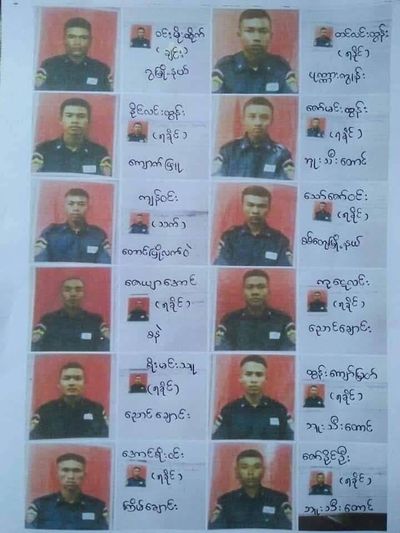 ဝင်းမိုးထိုက်
(ချင်း)
ဂွမြို့နယ်
တင်လင်းထွန်း
(ရခိုင်)
ပုဏ္ဏားကျွန်း
နိုင်လင်းထွန်း
(ရခိုင်)
ကျောက်ဖြူ
ဇော်မင်းထွန်း
(ရခိုင်)
ဘူးသီးတောင်
ကျန်ဝင်း
(သက်)
တောင်မြို့လက်ဝဲ
သော်ဇော်ဝင်း
(ရခိုင်)
စစ်တွေမြို့နယ်
ဇေယျာအောင်
(ရခိုင်)
(ရခိုင်)
ညောင်ချောင်း
စိုးမင်းသူ
(ရခိုင်)
ညောင်ချောင်း
ထွန်းကျော်မြတ်
(ရခိုင်)
ဘူးသီးတောင်
အောင်စိုးဝင်း
(ရခိုင်)
ကြိမ်ချောင်း
ဇော်နိုင်ဦး
(ရခိုင်)
ဘူးသီးတောင်